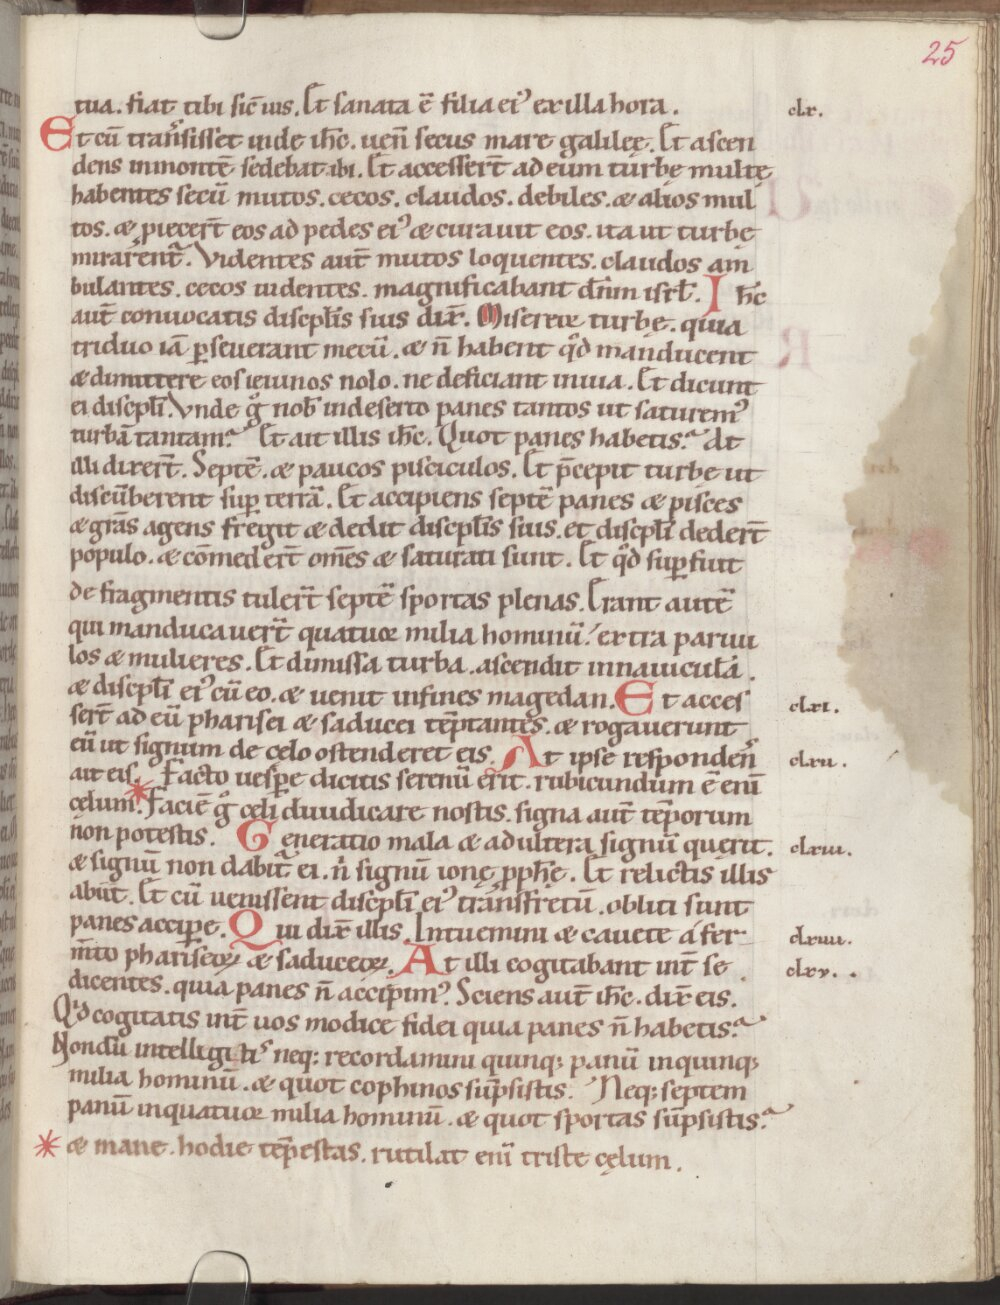 25
tua. fiat tibi sic̄ uis. Et sanata ē filia ei᾽ ex illa hora. clx.
Et cū trans̄isset inde ih̄c. uen̄ secus mare galileę. Et ascen
dens in montē sedebat ibi. Et accesser̄t ad eum turbę multę
habentes secū mutos. cecos. claudos. debiles. & alios mul
tos. & piecer̄t eos ad pedes ei᾽ & curauit eos. ita ut turbę
mirarent᷑. Videntes aut̄ mutos loquentes. claudos am
bulantes. cecos uidentes. magnificabant dn̄m isrł. Ih̄c
aut̄ conuocatis discipłis suis dix̄. Misereor turbę. quia
triduo iā p̱seuerant mecū. & n̄ habent qd̄ manducent
& dimittere eos ieiunos nolo. ne deficiant in uia. Et dicunt
ei discipłi. Vnde g̊ nob̄ in deserto panes tantos ut saturem᾽
turbā tantam? Et ait illis ih̄c. Quot panes habetis? At
illi dixer̄t. Septē. & paucos pisciculos. Et p̄cepit turbę ut
discūberent sup̱ terrā. Et accipiens septē panes & pisces
& grās agens fregit & dedit discipłis suis. et discipłi deder̄t
populo. & cōmeder̄t om̄es & saturati sunt. Et qd̄ sup̱fuit
de fragmentis tuler̄t septē sportas plenas. Erant autē
qui manducauer̄t quatuor milia hominū. extra paruu
los & mulieres. Et dimissa turba. ascendit in nauiculā.
& discipłi ei᾽ cū eo. & uenit in fines magedan. Et acces clxi.
ser̄t ad eū pharisei & saducei tēptantes. & rogauerunt
eū ut signum de celo ostenderet eis. At ipse responden᾽ clxii.
ait eis. Facto uesp̱e dicitis serenū erit. rubicundum ē enī
cęlum.* Faciē g̊ cęli diiudicare nostis. signa aut̄ tēporum
non potestis. Generatio mala & adultera signū querit. clxiii.
& signū non dabit᷑ ei. n̄ signū ionę p̱ph̄ę. Et relictis illis
abiit. Et cū uenissent discipłi ei᾽ trans fretū. obliti sunt
panes accip̱e. Qui dix̄ illis. Intuemini & cauete a fer clxiiii.
m̄to phariseoꝝ & saduceoꝝ. At illi cogitabant int̄ se clxv.
dicentes. quia panes n̄ accipim᾽. Sciens aut̄ ih̄c. dix̄ eis.
Qd̄ cogitatis int̄ uos modice fidei quia panes n̄ habetis?
Nondū intelligitis neq; recordamini quinq; panū in quinq;
milia hominū. & quot cophinos sūpsistis. Neq; septem
panū in quatuor milia hominū. & quot sportas sūpsistis?
* & mane. hodie tēpestas. rutilat enī triste cęlum.